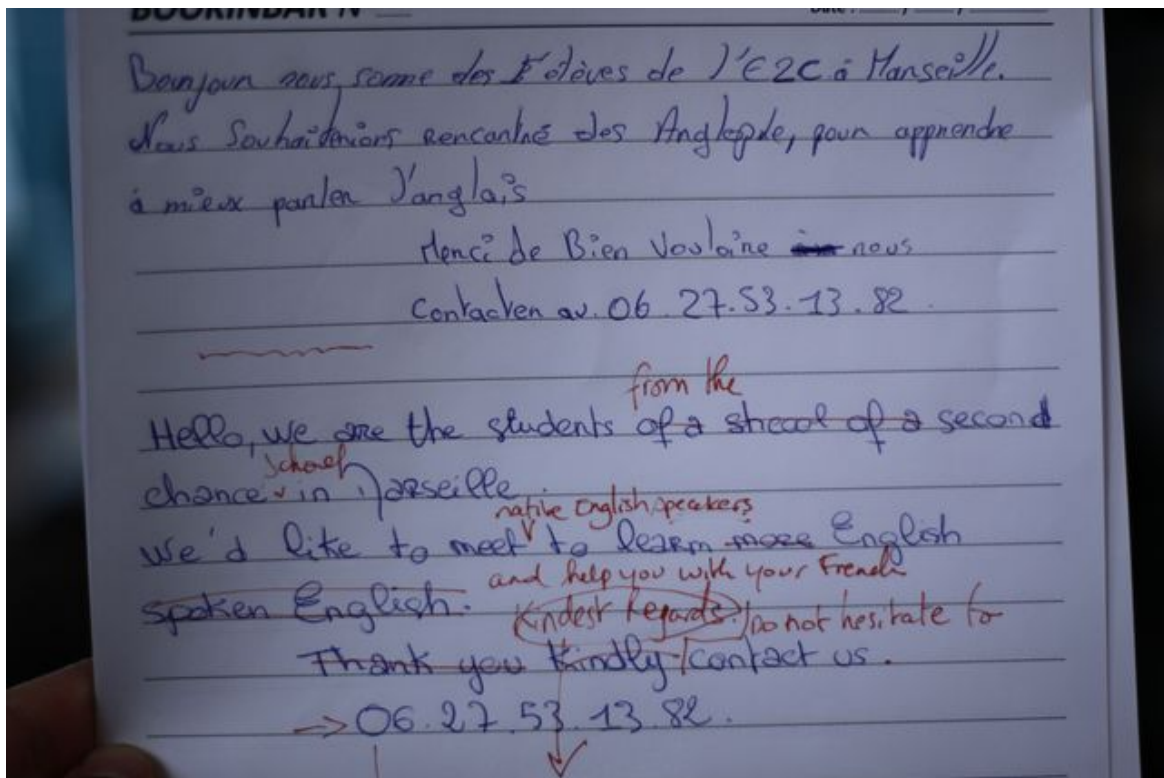 BOOKINBAR N° ___ Date : ___ / ___ / ___
Bonjour nous somme des élèves de l'E2C à Marseille.
Nous Souhaiterions rencontré des Anglopde, pour apprendre
à mieux parler l'anglais
Merci de Bien Vouloire nous
Contacter au. 06.27.53.13.82.
from the
Hello, we are the students of a shcool of a second
school
chance in Marseille.
native English speakers
We'd like to meet to learn more English
and help you with your French
spoken English.
Kindest Regards. Do not hesitate to
Thank you Kindly contact us.
→ 06.27.53.13.82.